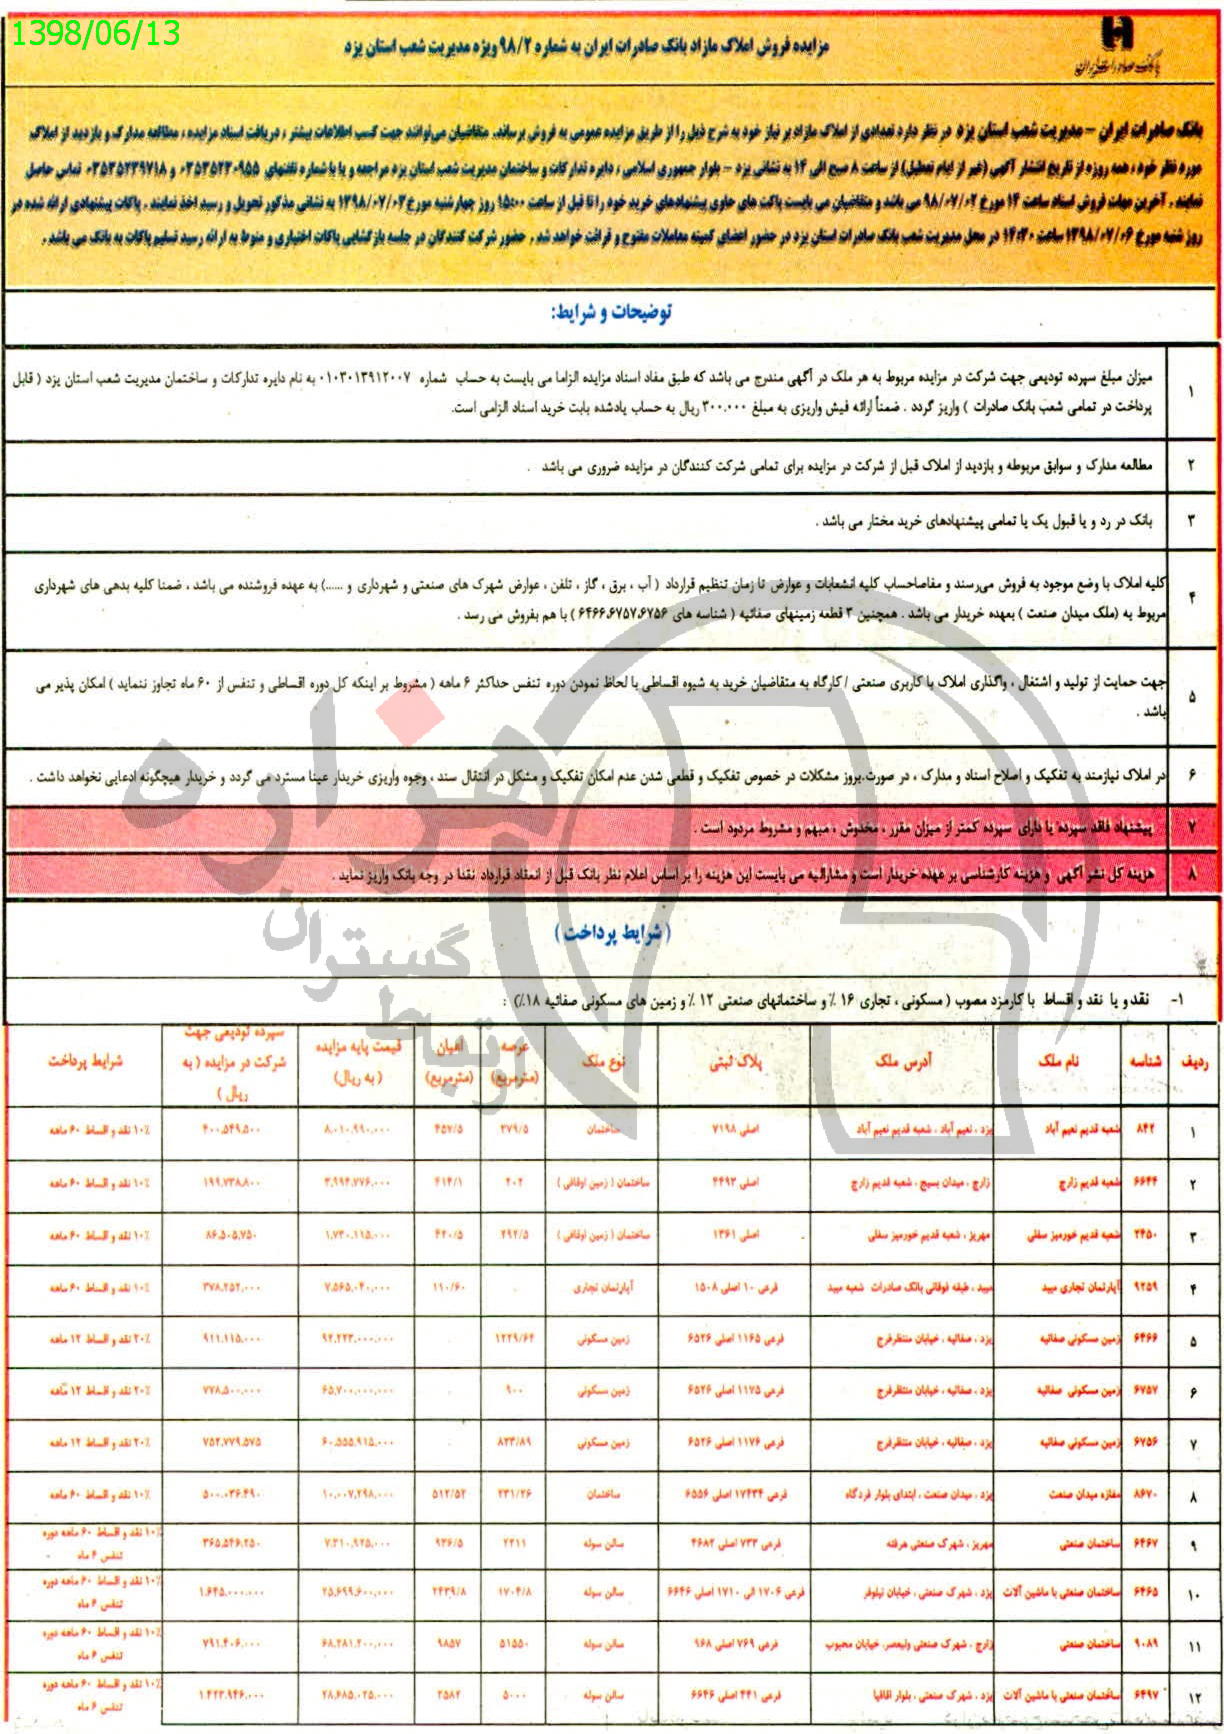 1398/06/13
بانک صادرات ایران
مزایده فروش املاک مازاد بانک صادرات ایران به شماره ۹۸/۲ ویژه مدیریت شعب استان یزد
بانک صادرات ایران - مدیریت شعب استان یزد در نظر دارد تعدادی از املاک مازاد بر نیاز خود به شرح ذیل را از طریق مزایده عمومی به فروش برساند. متقاضیان می‌توانند جهت کسب اطلاعات بیشتر ، دریافت اسناد مزایده ، مطالعه مدارک و بازدید از املاک
مورد نظر خود ، همه روزه از تاریخ انتشار آگهی (غیر از ایام تعطیل) از ساعت ۸ صبح الی ۱۴ به نشانی یزد - بلوار جمهوری اسلامی ، دایره تدارکات و ساختمان مدیریت شعب استان یزد مراجعه و یا با شماره تلفنهای ۰۳۵۳۵۲۳۰۹۵۵ و ۰۳۵۳۵۲۳۹۷۱۸ تماس حاصل
نمایند . آخرین مهلت فروش اسناد ساعت ۱۴ مورخ ۹۸/۰۷/۰۲ می باشد و متقاضیان می بایست پاکت های حاوی پیشنهادهای خرید خود را تا قبل از ساعت ۱۵:۰۰ روز چهارشنبه مورخ ۱۳۹۸/۰۷/۰۳ به نشانی مذکور تحویل و رسید اخذ نمایند . پاکات پیشنهادی ارائه شده در
روز شنبه مورخ ۱۳۹۸/۰۷/۰۶ ساعت ۱۴:۳۰ در محل مدیریت شعب بانک صادرات استان یزد در حضور اعضای کمیته معاملات مفتوح و قرائت خواهد شد . حضور شرکت کنندگان در جلسه بازگشایی پاکات اختیاری و منوط به ارائه رسید تسلیم پاکات به بانک می باشد .
توضیحات و شرایط:
۱ میزان مبلغ سپرده تودیعی جهت شرکت در مزایده مربوط به هر ملک در آگهی مندرج می باشد که طبق مفاد اسناد مزایده الزاما می بایست به حساب شماره ۰۱۰۳۰۱۳۹۱۲۰۰۷ به نام دایره تدارکات و ساختمان مدیریت شعب استان یزد ( قابل
پرداخت در تمامی شعب بانک صادرات ) واریز گردد . ضمناً ارائه فیش واریزی به مبلغ ۳۰۰.۰۰۰ ریال به حساب یادشده بابت خرید اسناد الزامی است.
۲ مطالعه مدارک و سوابق مربوطه و بازدید از املاک قبل از شرکت در مزایده برای تمامی شرکت کنندگان در مزایده ضروری می باشد .
۳ بانک در رد و یا قبول یک یا تمامی پیشنهادهای خرید مختار می باشد .
۴ کلیه املاک با وضع موجود به فروش می‌رسند و مفاصاحساب کلیه انشعابات و عوارض تا زمان تنظیم قرارداد ( آب ، برق ، گاز ، تلفن ، عوارض شهرک های صنعتی و شهرداری و .....) به عهده فروشنده می باشد ، ضمنا کلیه بدهی های شهرداری
مربوط به (ملک میدان صنعت ) بعهده خریدار می باشد . همچنین ۳ قطعه زمینهای صفائیه ( شناسه های ۶۴۶۶،۶۷۵۷،۶۷۵۶ ) با هم بفروش می رسد .
۵ جهت حمایت از تولید و اشتغال ، واگذاری املاک با کاربری صنعتی / کارگاه به متقاضیان خرید به شیوه اقساطی با لحاظ نمودن دوره تنفس حداکثر ۶ ماهه ( مشروط بر اینکه کل دوره اقساطی و تنفس از ۶۰ ماه تجاوز ننماید ) امکان پذیر می
باشد .
۶ در املاک نیازمند به تفکیک و اصلاح اسناد و مدارک ، در صورت بروز مشکلات در خصوص تفکیک و قطعی شدن عدم امکان تفکیک و مشکل در انتقال سند ، وجوه واریزی خریدار عینا مسترد می گردد و خریدار هیچگونه ادعایی نخواهد داشت .
۷ پیشنهاد فاقد سپرده یا دارای سپرده کمتر از میزان مقرر ، مخدوش ، مبهم و مشروط مردود است .
۸ هزینه کل نشر آگهی و هزینه کارشناسی بر عهده خریدار است و مشارالیه می بایست این هزینه را بر اساس اعلام نظر بانک قبل از انعقاد قرارداد نقدا در وجه بانک واریز نماید .
( شرایط پرداخت )
۱- نقد و یا نقد و اقساط با کارمزد مصوب ( مسکونی ، تجاری ۱۶ ٪ و ساختمانهای صنعتی ۱۲ ٪ و زمین های مسکونی صفائیه ۱۸٪) :
ردیف شناسه نام ملک آدرس ملک پلاک ثبتی نوع ملک عرصه (مترمربع) اعیان (مترمربع) قیمت پایه مزایده ( به ریال) سپرده تودیعی جهت شرکت در مزایده ( به ریال ) شرایط پرداخت
۱ ۸۴۲ شعبه قدیم نعیم آباد یزد ، نعیم آباد ، شعبه قدیم نعیم آباد اصلی ۷۱۹۸ ساختمان ۲۷۹/۵ ۴۵۷/۵ ۸.۰۱۰.۹۹۰.۰۰۰ ۴۰۰.۵۴۹.۵۰۰ ۱۰٪ نقد و اقساط ۶۰ ماهه
۲ ۶۶۴۴ شعبه قدیم زارچ زارچ ، میدان بسیج ، شعبه قدیم زارچ اصلی ۴۴۹۳ ساختمان ( زمین اوقافی ) ۲۰۲ ۴۱۴/۱ ۳.۹۹۴.۷۷۶.۰۰۰ ۱۹۹.۷۳۸.۸۰۰ ۱۰٪ نقد و اقساط ۶۰ ماهه
۳ ۲۴۵۰ شعبه قدیم خورمیز سفلی مهریز ، شعبه قدیم خورمیز سفلی اصلی ۱۳۶۱ ساختمان ( زمین اوقافی ) ۲۹۲/۵ ۴۲۰/۵ ۱.۷۳۰.۱۱۵.۰۰۰ ۸۶.۵۰۵.۷۵۰ ۱۰٪ نقد و اقساط ۶۰ ماهه
۴ ۹۲۵۹ آپارتمان تجاری میبد میبد ، طبقه فوقانی بانک صادرات شعبه میبد فرعی ۱۰ اصلی ۱۵۰۸ آپارتمان تجاری ۱۱۰/۶۰ ۷.۵۶۵.۰۴۰.۰۰۰ ۳۷۸.۲۵۲.۰۰۰ ۱۰٪ نقد و اقساط ۶۰ ماهه
۵ ۶۴۶۶ زمین مسکونی صفائیه یزد ، صفائیه ، خیابان منتظرفرج فرعی ۱۱۶۵ اصلی ۶۵۲۶ زمین مسکونی ۱۲۲۹/۶۴ ۹۲.۲۲۳.۰۰۰.۰۰۰ ۹۱۱.۱۱۵.۰۰۰ ۲۰٪ نقد و اقساط ۱۲ ماهه
۶ ۶۷۵۷ زمین مسکونی صفائیه یزد ، صفائیه ، خیابان منتظرفرج فرعی ۱۱۷۵ اصلی ۶۵۲۶ زمین مسکونی ۹۰۰ ۶۵.۷۰۰.۰۰۰.۰۰۰ ۷۷۸.۵۰۰.۰۰۰ ۲۰٪ نقد و اقساط ۱۲ ماهه
۷ ۶۷۵۶ زمین مسکونی صفائیه یزد ، صفائیه ، خیابان منتظرفرج فرعی ۱۱۷۶ اصلی ۶۵۲۶ زمین مسکونی ۸۲۳/۸۹ ۶۰.۵۵۵.۹۱۵.۰۰۰ ۷۵۲.۷۷۹.۵۷۵ ۲۰٪ نقد و اقساط ۱۲ ماهه
۸ ۸۶۷۰ مغازه میدان صنعت یزد ، میدان صنعت ، ابتدای بلوار فرودگاه فرعی ۱۷۴۳۴ اصلی ۶۵۵۶ ساختمان ۲۳۱/۲۶ ۵۱۲/۵۲ ۱۰.۰۰۷.۲۹۸.۰۰۰ ۵۰۰.۰۳۶.۴۹۰ ۱۰٪ نقد و اقساط ۶۰ ماهه
۹ ۶۴۶۷ ساختمان صنعتی مهریز ، شهرک صنعتی هرفته فرعی ۷۳۳ اصلی ۴۶۸۲ سالن سوله ۲۳۱۱ ۹۳۶/۵ ۷.۳۱۰.۹۲۵.۰۰۰ ۳۶۵.۵۴۶.۲۵۰ ۱۰٪ نقد و اقساط ۶۰ ماهه دوره تنفس ۶ ماه
۱۰ ۶۴۶۵ ساختمان صنعتی با ماشین آلات یزد ، شهرک صنعتی ، خیابان نیلوفر فرعی ۱۷۰۶ الی ۱۷۱۰ اصلی ۶۶۴۶ سالن سوله ۱۷۰۴/۸ ۲۴۳۹/۸ ۲۵.۶۹۹.۶۰۰.۰۰۰ ۱.۶۴۵.۰۰۰.۰۰۰ ۱۰٪ نقد و اقساط ۶۰ ماهه دوره تنفس ۶ ماه
۱۱ ۹۰۸۹ ساختمان صنعتی زارچ ، شهرک صنعتی ولیعصر، خیابان محبوب فرعی ۷۶۹ اصلی ۹۶۸ سالن سوله ۵۱۵۵۰ ۹۸۵۷ ۶۸.۲۸۱.۲۰۰.۰۰۰ ۷۹۱.۴۰۶.۰۰۰ ۱۰٪ نقد و اقساط ۶۰ ماهه دوره تنفس ۶ ماه
۱۲ ۶۴۹۷ ساختمان صنعتی با ماشین آلات یزد ، شهرک صنعتی ، بلوار اقاقیا فرعی ۴۴۱ اصلی ۶۶۴۶ سالن سوله ۵۰۰۰ ۲۵۸۲ ۲۸.۶۸۵.۰۲۵.۰۰۰ ۱.۴۲۳.۹۴۶.۰۰۰ ۱۰٪ نقد و اقساط ۶۰ ماهه دوره تنفس ۶ ماه
هزاره
گستران
ارتباط